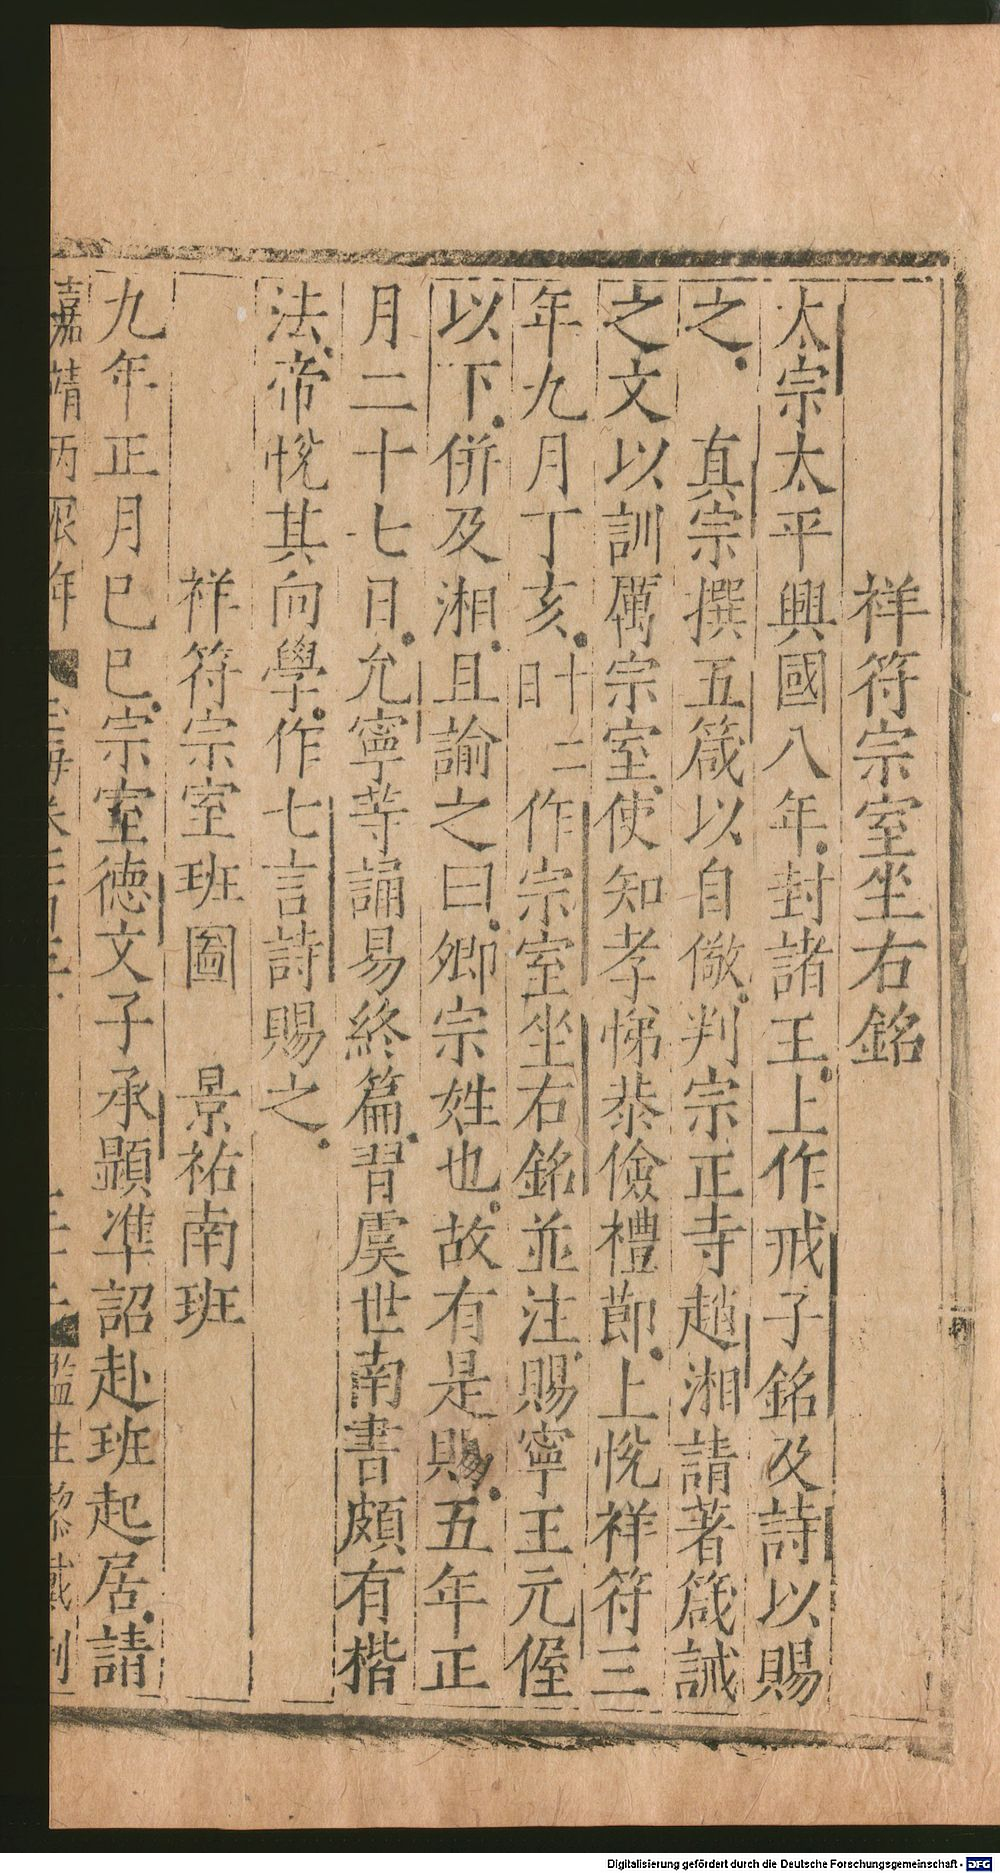 祥符宗室坐右銘
太宗太平興國八年封諸王上作戒子銘及詩以賜
之　真宗撰五箴以自儆判宗正寺趙湘請著箴誡
之文以訓厲宗室使知孝悌恭儉禮節上悅祥符三
年九月丁亥二十日作宗室坐右銘並注賜寧王元偓
以下併及湘且諭之曰卿宗姓也故有是賜五年正
月二十七日允寧等誦易終篇背虞世南書頗有楷
法帝悅其向學作七言詩賜之
祥符宗室班圖　景祐南班
九年正月己巳宗室德文子承顯準詔赴班起居請
嘉靖丙年　監生黎戴刊
Digitalisierung gefördert durch die Deutsche Forschungsgemeinschaft - DFG